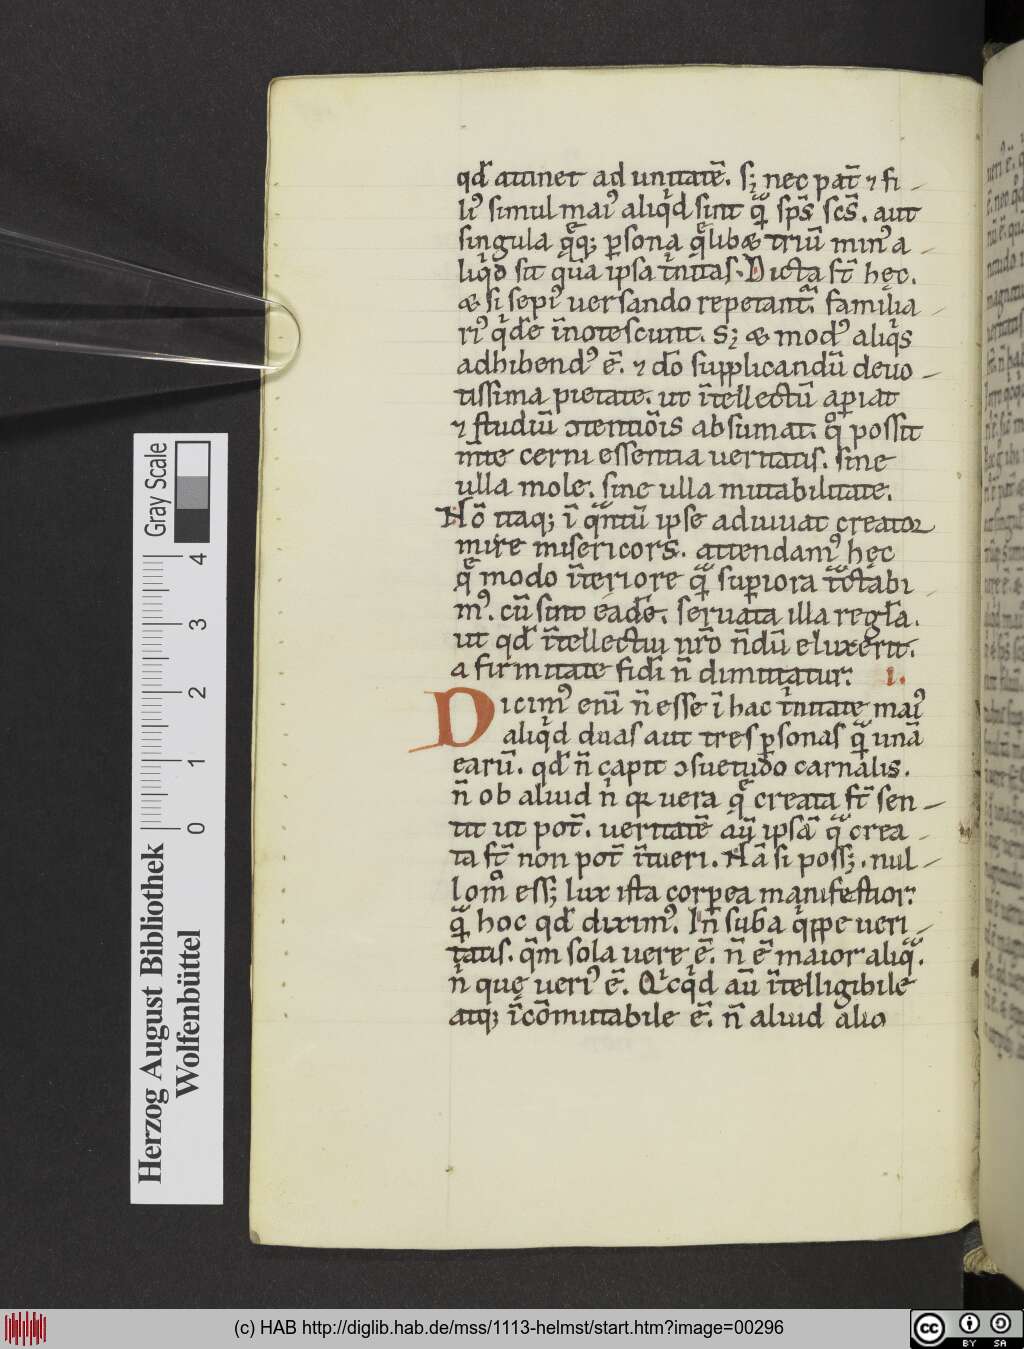 qd̄ attinet ad unitatē. s; nec pat̄ ⁊ fi
liꝰ simul maiꝰ aliqͥd sint qͣ̄ sp̄s sc̄s. aut
singula q̄q; ꝑsona q̄libꝫ triū minꝰ a
liqͥd sit quā ipsa tͥnitas. Dicta st̄ hęc.
& si sepiꝰ uersando repetantᷓ. familia
riꝰ qͥdē īnotescunt. S; & modꝰ aliqͥs
adhibendꝰ ē. ⁊ dō supplicandū deuo
tissima pietate. ut ītellectū aꝑiat
⁊ studiū ↄtentiōis absumat. qͦ possit
m̄te cerni essentia ueritatis. sine
ulla mole. sine ulla mutabilitate.
Nō itaq; ī qͣntū ipse adiuuat creator
mire misericors. attendamꝰ hęc
q̄ modo īteriore qͣ̄ suꝑiora tͣctabi
mꝰ. cū sint eadē. seruata illa regl̄a.
ut qd̄ ītellectui nr̄o n̄dū eluxerit.
a firmitate fidī n̄ dimittatur. 1.
Dicimꝰ enī n̄ esse ī hac tͥnitate maiꝰ
aliqͥd duas aut tres ꝑsonas qͣ̄ unā
earū. qd̄ n̄ capit ↄsuetudo carnalis.
n̄ ob aliud nͥ qꝛ uera q̄ creata st̄ sen
tit ut pot̄. ueritatē aū ipsā qͣ crea
ta st̄ non pot̄ ītueri. Nā si poss;. nul
lom̊ ess; lux ista corꝑea manifestior.
qͣ̄ hoc qd̄ diximꝰ. In̄ suba qͥppe ueri
tatis. qm̄ sola uere ē. n̄ ē maior aliqͣ.
nͥ que ueriꝰ ē. Qͥcqͥd aū ītelligibile
atq; īcōmutabile ē. n̄ aliud alio
Herzog August Bibliothek
Wolfenbüttel
0 1 2 3 4
Gray Scale
(c) HAB http://diglib.hab.de/mss/1113-helmst/start.htm?image=00296
cc BY SA